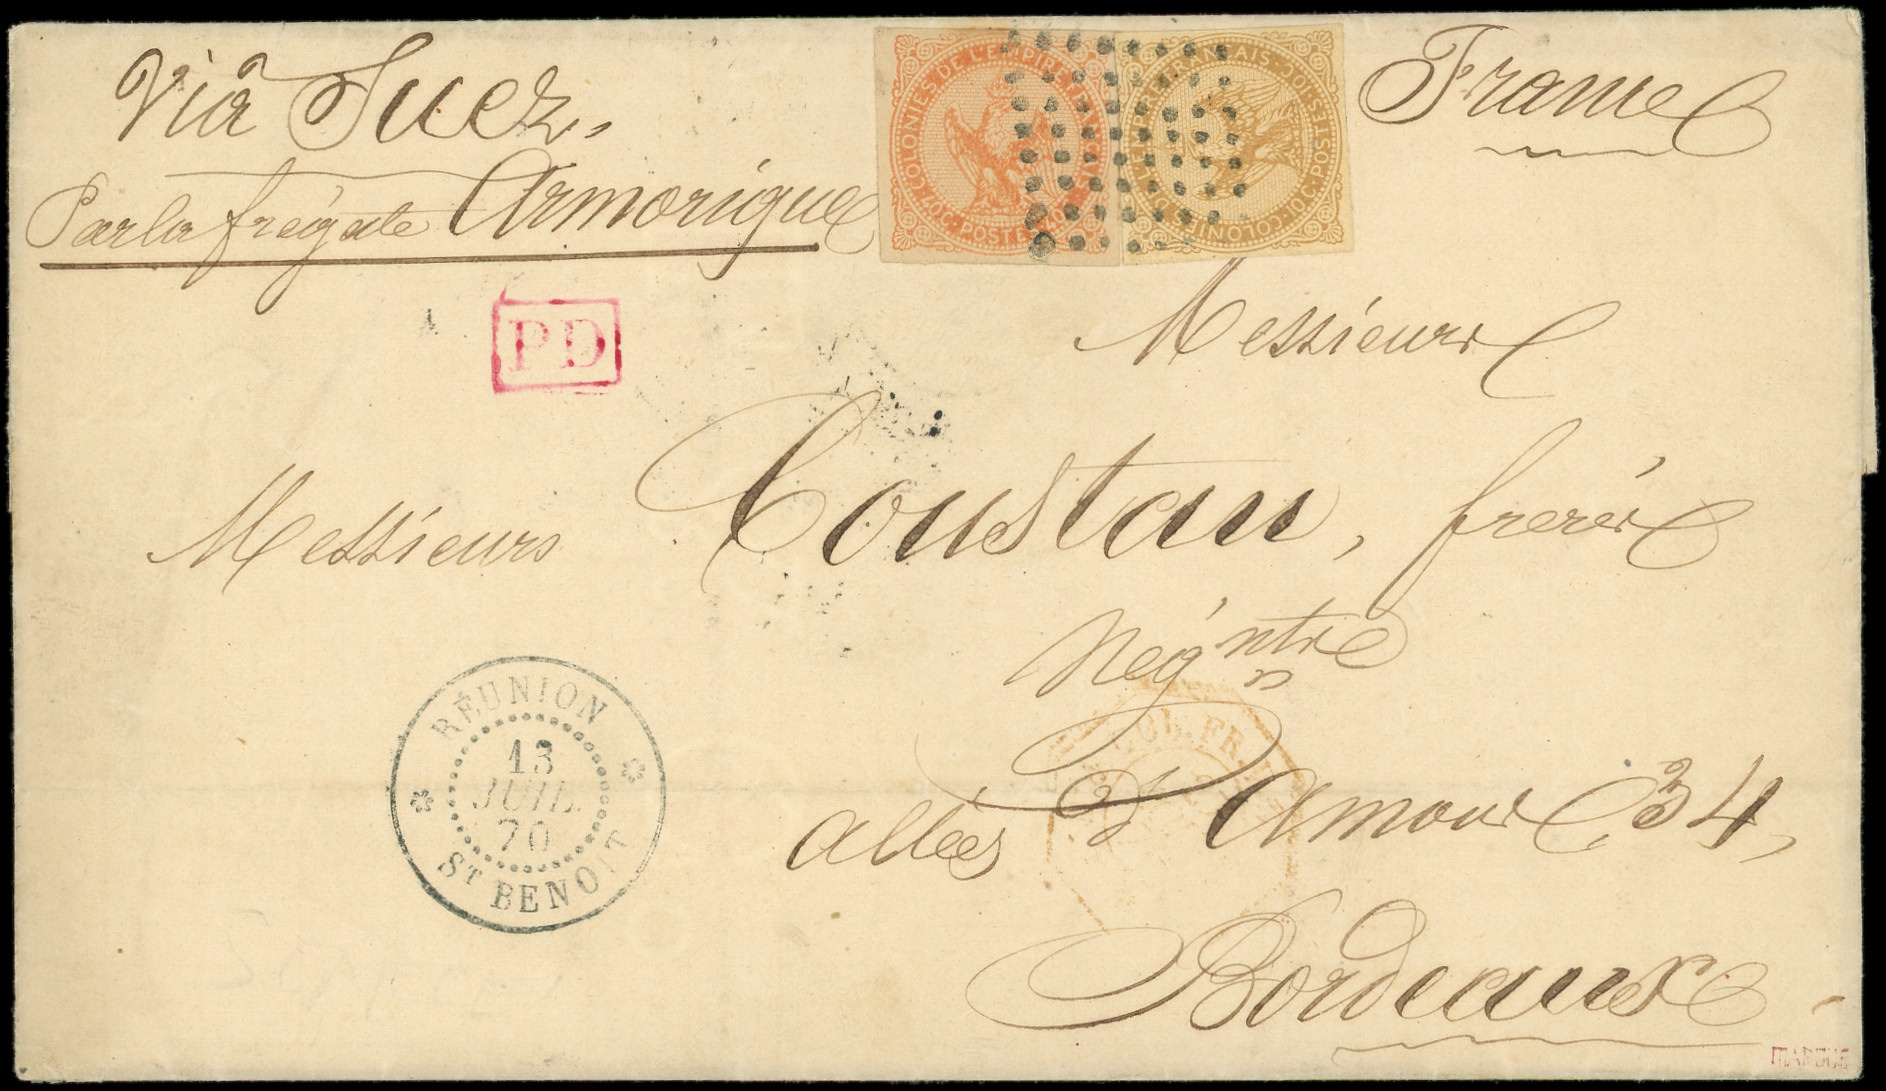 Viâ Suez.
Par la frégate Armorique
France
COLONIES DE L'EMPIRE FRANÇAIS · 40c. POSTES · 40c.
COLONIES DE L'EMPIRE FRANÇAIS · 10c. POSTES · 10c.
PD
Messieurs
Messieurs Coustau, frères
Négntre
allées d'Amour, 34,
Bordeaux
RÉUNION
13
JUIL.
70
ST BENOIT
COL. FR.